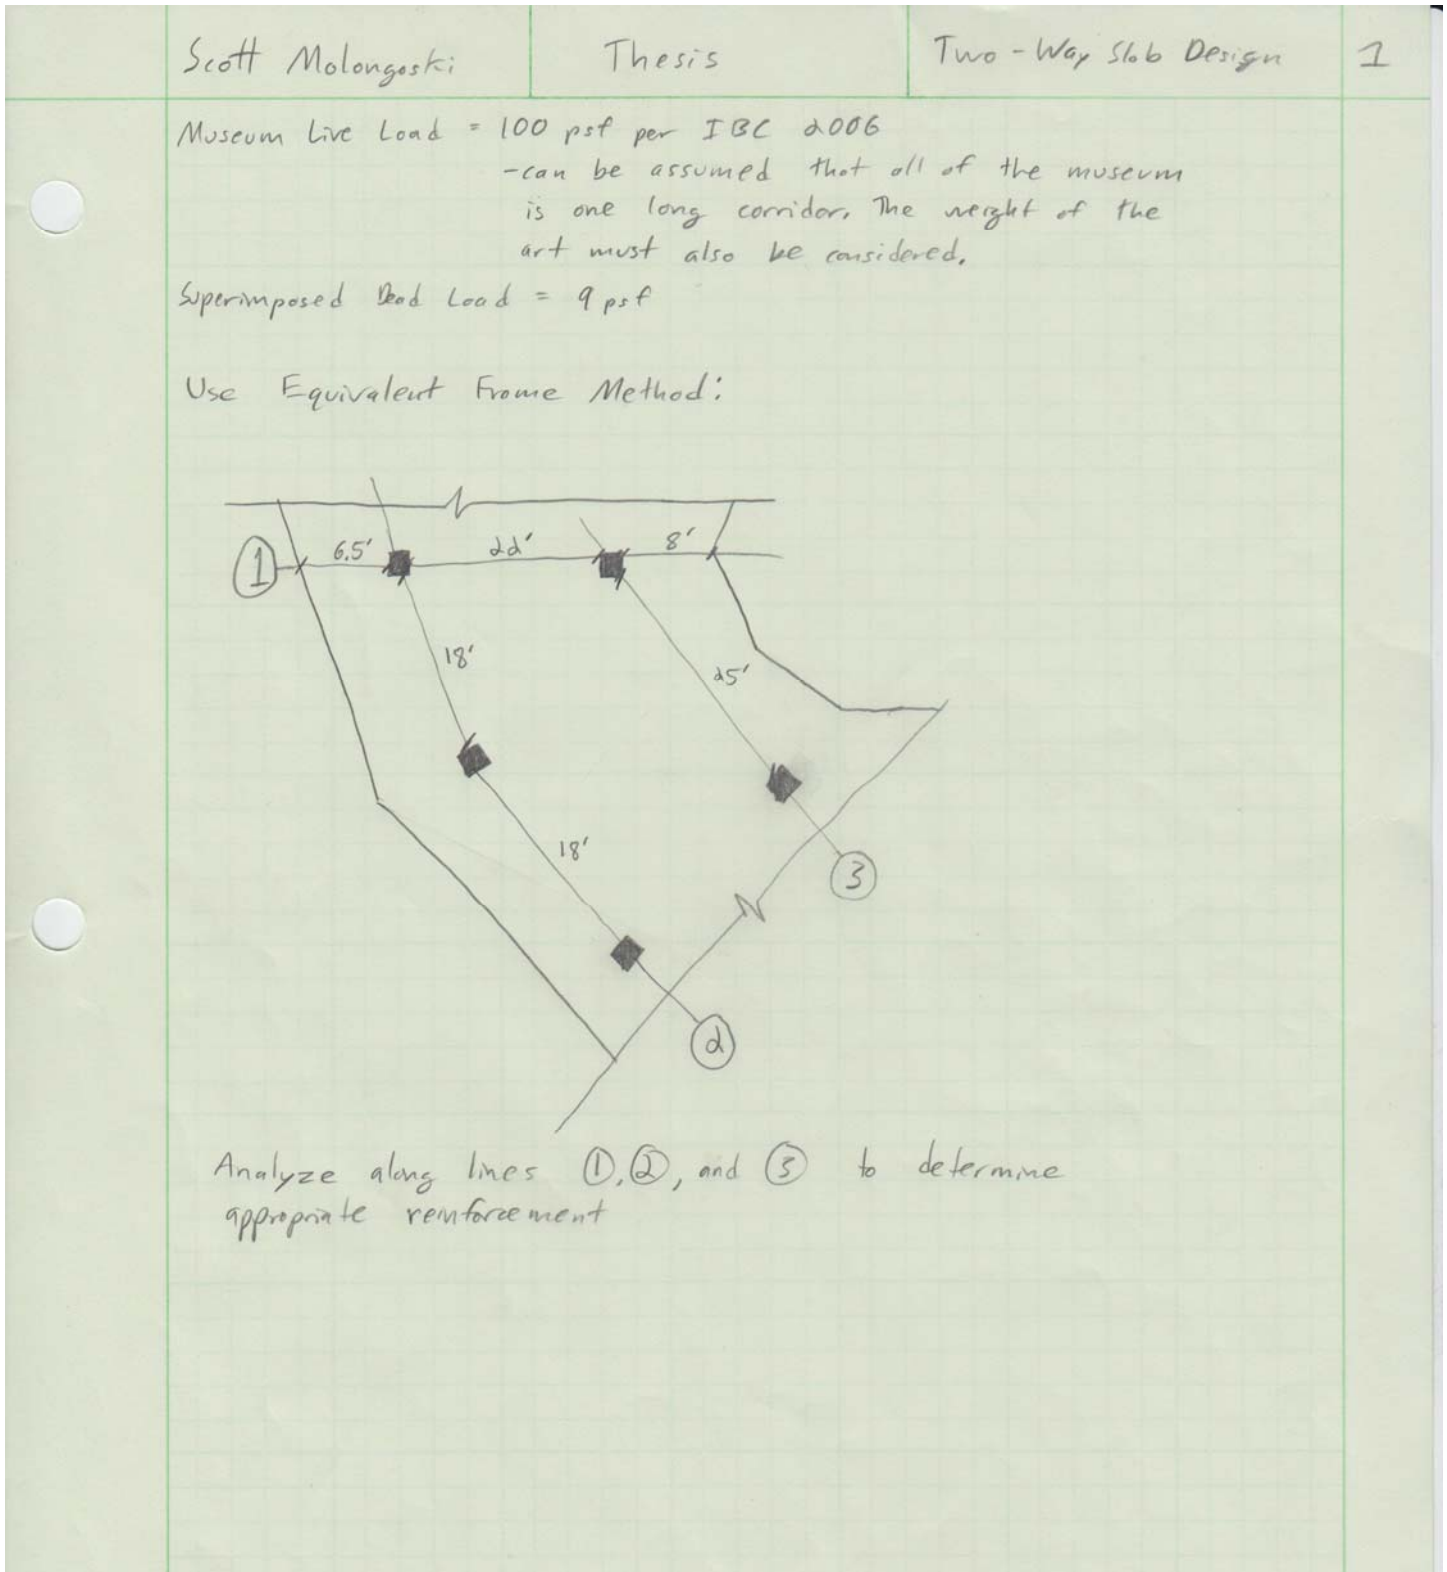 Scott Molongoski
Thesis
Two-Way Slab Design
1
Museum Live Load = 100 psf per IBC 2006
-can be assumed that all of the museum
is one long corridor. The weight of the
art must also be considered.
Superimposed Dead Load = 9 psf
Use Equivalent Frame Method:
1
6.5'
22'
8'
18'
25'
18'
3
2
Analyze along lines ①,②, and ③ to determine
appropriate reinforcement